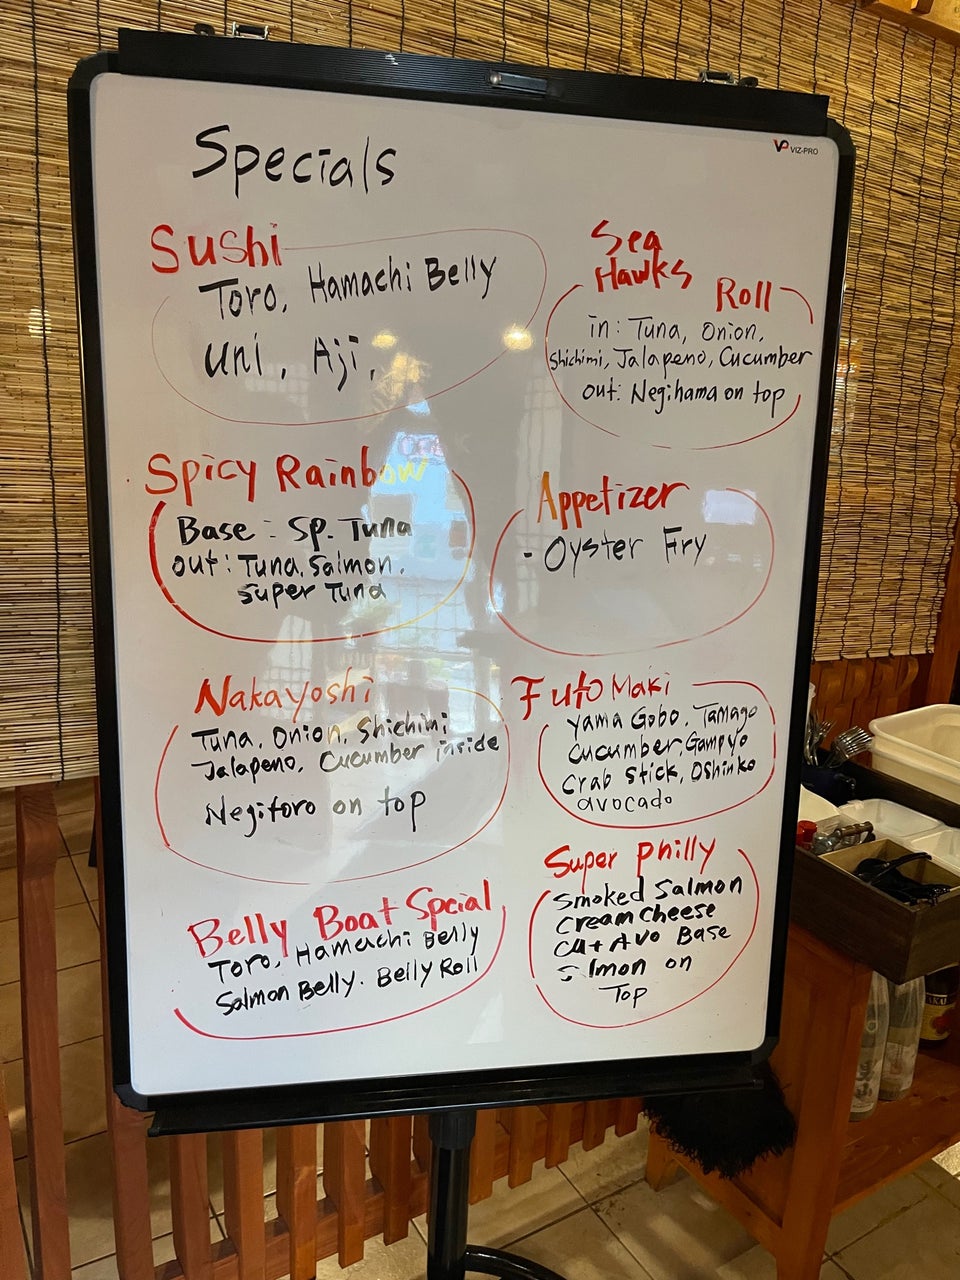 Specials
VP VIZ-PRO
Sushi
Toro, Hamachi Belly
uni, Aji,
Sea
Hawks
Roll
in: Tuna, Onion,
Shichimi, Jalapeno, Cucumber
out: Negihama on top
Spicy Rainbow
Base: Sp. Tuna
out: Tuna, Salmon,
Super Tuna
Appetizer
- Oyster Fry
Nakayoshi
Tuna, Onion, Shichimi
Jalapeno, Cucumber inside
Negitoro on top
Futo Maki
Yama Gobo, Tamago
Cucumber, Gampyo
Crab Stick, Oshinko
avocado
Belly Boat Spcial
Toro, Hamachi Belly
Salmon Belly. Belly Roll
Super philly
Smoked Salmon
Cream cheese
Cu + Avo Base
Salmon on
Top